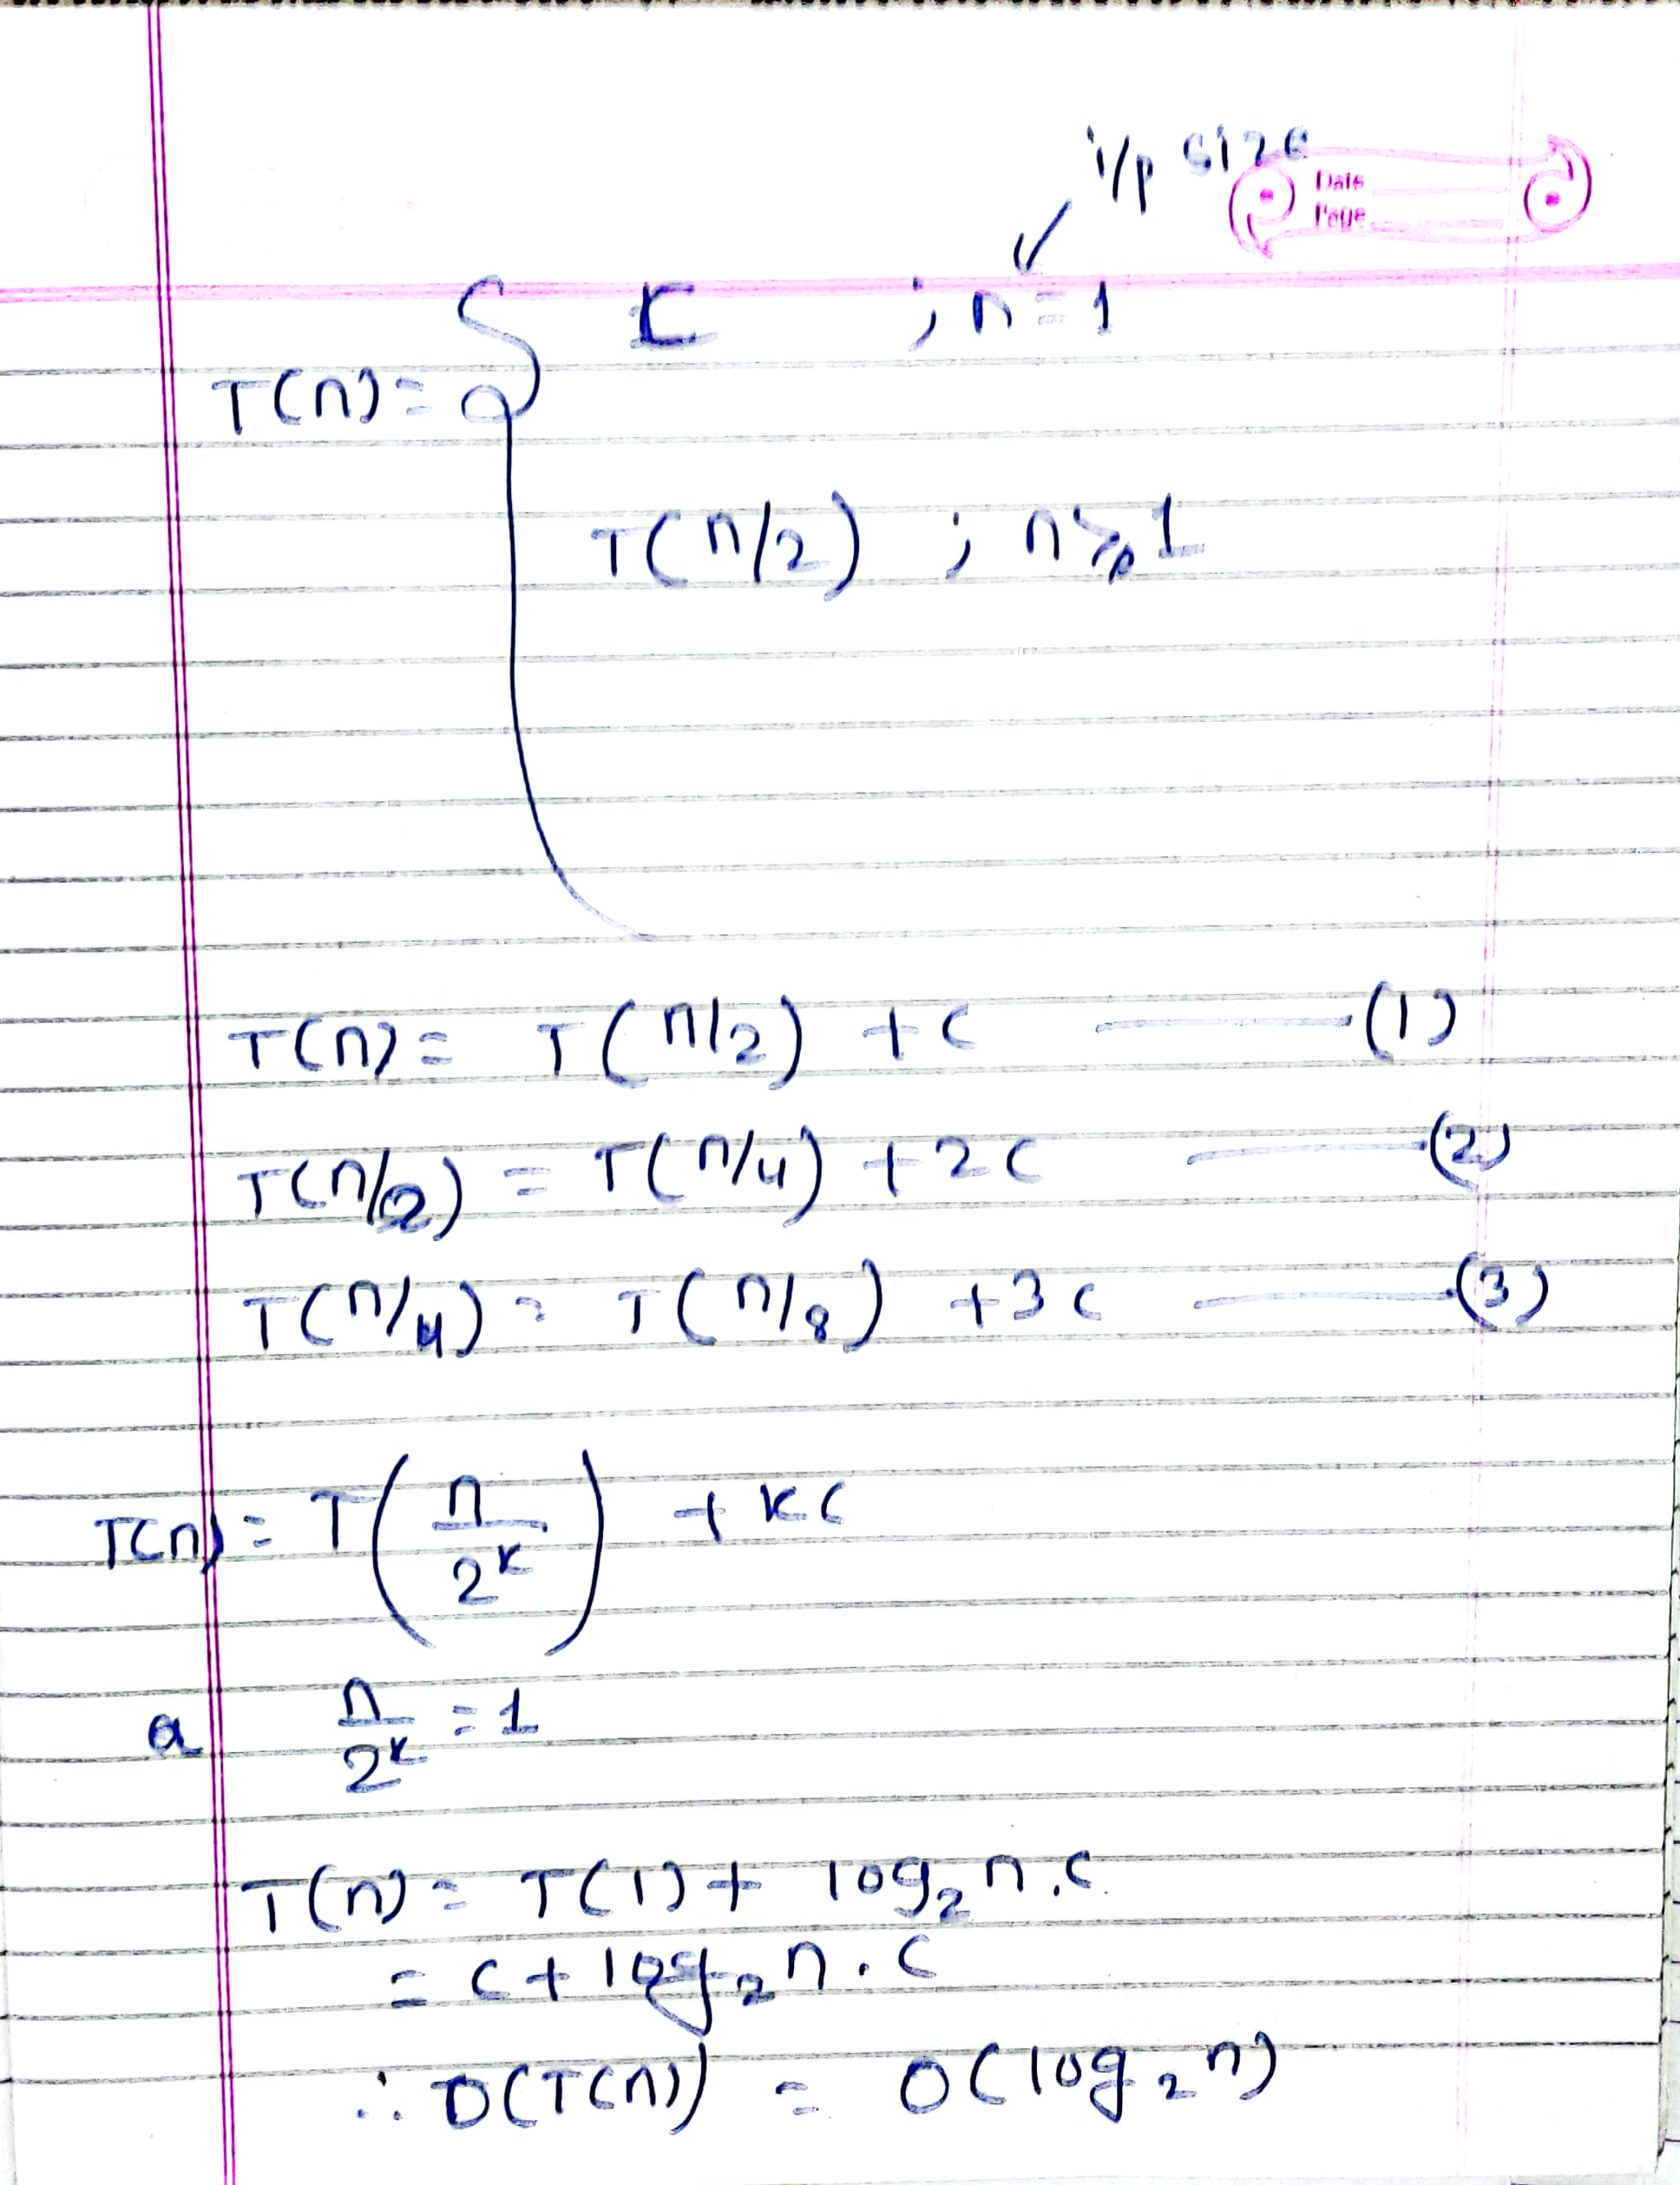 i/p size
Date
Page
T(n) = { c ; n = 1
T(n/2) ; n ≥ 1
T(n) = T(n/2) + c —— (1)
T(n/2) = T(n/4) + 2c —— (2)
T(n/4) = T(n/8) + 3c —— (3)
T(n) = T(n/2^k) + kc
a n/2^k = 1
T(n) = T(1) + log₂n.c
= c + log₂n.c
∴ O(T(n)) = O(log₂n)